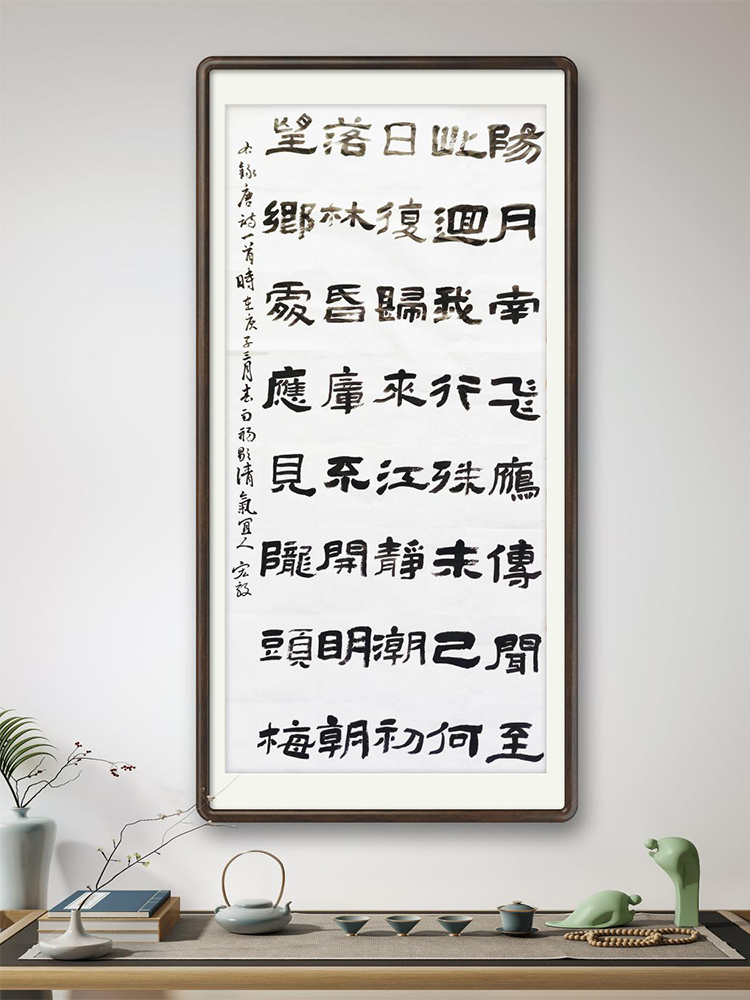 陽月南飛鴈傳聞至
此迴我行殊未已何
日復歸來江靜潮初
落林昏瘴不開明朝
望鄉處應見隴頭梅
右錄唐詩一首時在庚子三月春雨初歇清氣宜人 宏毅